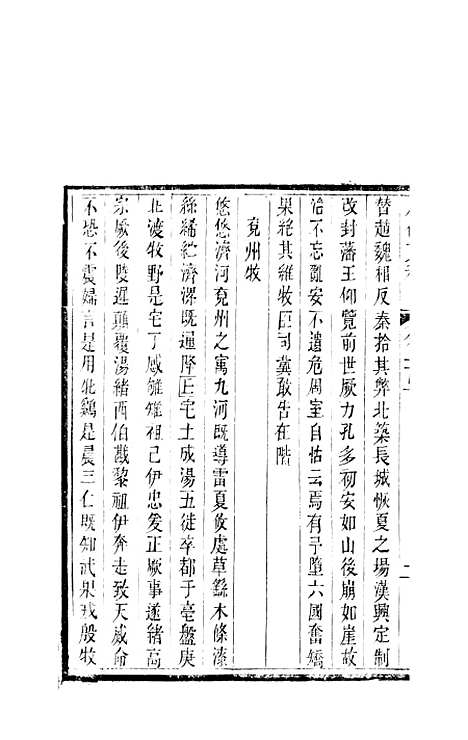 替趙魏相反秦拾其弊北築長城恢夏之場漢興定制
改封藩王仰覽前世厥力孔多初安如山後崩如崖故
治不忘亂安不遺危周室自怙云焉有予隳六國奮矯
果絕其維牧臣司冀敢告在階
兗州牧
悠悠濟河兗州之寓九河既導雷夏攸處草繇木條漆
絲絺紵濟漯既通降丘宅土成湯五徙卒都于亳盤庚
北渡牧野是宅丁感雊雉祖己伊忠爰正厥事遂緒高
宗厥後陵遲顛覆湯緒西伯戡黎祖伊奔走致天威命
不恐不震婦言是用牝鷄是晨三仁既知武果戎殷牧